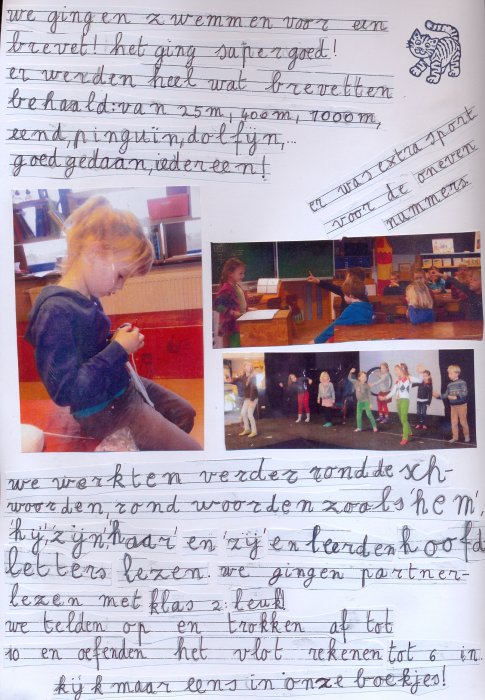 we gingen zwemmen voor een
brevet! het ging supergoed!
er werden heel wat brevetten
behaald: van 25m, 400m, 1000m,
eend, pinguïn, dolfijn,...
goed gedaan, iedereen!
er was extra sport
voor de oneven
nummers.
we werkten verder rond de sch-
woorden, rond woorden zoals 'hem',
'hij', 'zijn', 'haar' en 'zij' en leerden hoofd
letters lezen. we gingen partner-
lezen met klas 2: leuk!
we telden op en trokken af tot
10 en oefenden het vlot rekenen tot 6 in.
kijk maar eens in onze boekjes!